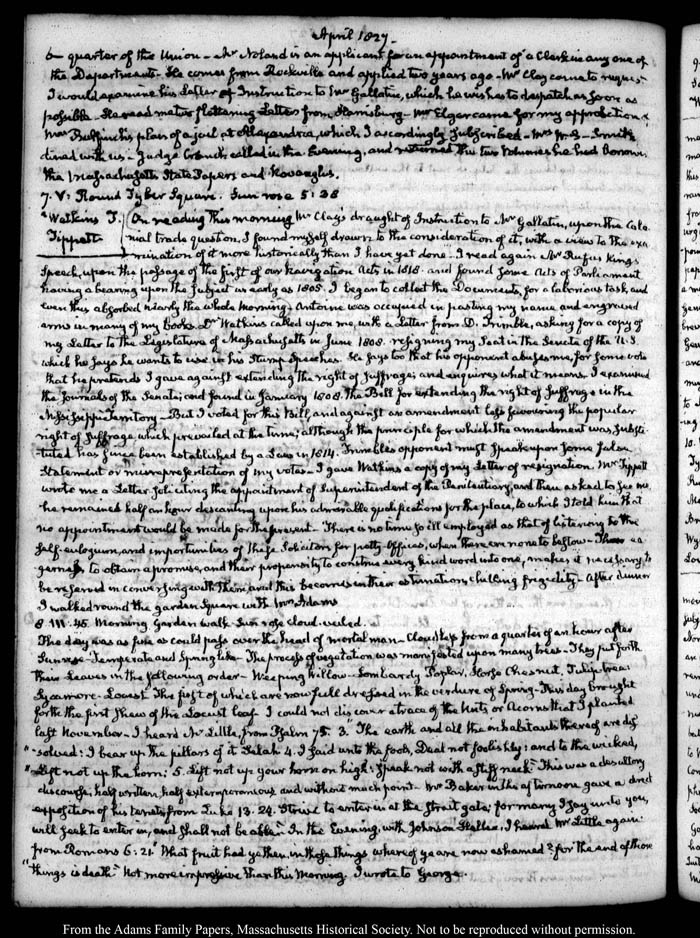 April 1827.
6 quarter of the Union. Mr. Noland is an applicant for an appointment of a Clerk in any one of
the Departments. He comes from Rockville and applied two years ago. Mr. Clay came to request
I would examine his Letter of Instruction to Mr. Gallatin, which he wishes to despatch as soon as
possible. He read me two flattering Letters from Harrisburg. Mr. Elgar came for my approbation of
Ruffin's plan of a jail at Alexandria, which I accordingly subscribed. Smith
dined with us. Judge Cranch called in the Evening, and returned the two Volumes he had borrowed
the Massachusetts State Papers and
7. V: Round Tyber Square. Sun rose 5:36
Watkins T. On reading this morning Mr. Clay's draught of Instruction to Mr. Gallatin, upon the Colo-
Tippett nial trade question, I found myself drawn to the consideration of it, with a view to the exa-
mination of it more historically than I have yet done. I read again Mr. Rufus King's
Speech, upon the passage of the first of our Navigation Acts in 1818. and found some Acts of Parliament
having a bearing upon the subject as early as 1805. I began to collect the Documents, for a laborious task, and
even this absorbed nearly the whole Morning. Antoine was occupied in pasting my name and engraved
arms in many of my books. Dr. Watkins called upon me, with a Letter from D. Trimble, asking for a copy of
my Letter to the Legislature of Massachusetts in June 1808. resigning my Seat in the Senate of the U.S.
which he says he wants to use in his Stump Speeches. He says too that his opponent abuses me, for some vote
that he pretends I gave against extending the right of Suffrage; and enquires what it means. I examined
the Journals of the Senate; and found in January 1808. the Bill for extending the right of Suffrage in the
Mississippi Territory. But I voted for this Bill, and against an amendment less favouring the popular
right of Suffrage which prevailed at the time; although the principle for which the amendment was substi-
tuted has since been established by a Law in 1814. Trimble's opponent must speak upon some false
Statement or misrepresentation of my votes. I gave Watkins a copy of my Letter of resignation. Mr. Tippett
wrote me a Letter soliciting the appointment of Superintendent of the Penitentiary, and then asked to see me.
he remained half an hour descanting upon his admirable qualifications for the place, to which I told him that
no appointment would be made for the present. There is no time so ill employed as that of listening to the
self-eulogium, and importunities of these Solicitors for petty Offices, when there are none to bestow. Their ea-
gerness to obtain a promise, and their propensity to construe every kind word into one, makes it necessary to
be reserved in conversing with them and this becomes in their estimation, chilling frigidity. After dinner
I walked round the garden Square with Mrs. Adams
8. III:45. Morning Garden walk. Sun rose cloud-veiled.
The day was as fine as could pass over the head of mortal man. Cloudless from a quarter of an hour after
Sunrise. Temperate and Springlike. The process of vegetation was manifested upon many trees. They put forth
their Leaves in the following order. Weeping Willow. Lombardy Poplar, Horse Chesnut, Tulip tree.
Sycamore. Locust. The first of which are now full dressed in the verdure of Spring. This day brought
forth the first shew of the Locust leaf. I could not discover a trace of the Nuts or Acorns that I planted
last November. I heard Mr. Little, from Psalm 75. 3. "The earth and all the inhabitants thereof are dis-
"solved: I bear up the pillars of it Selah 4. I said unto the fools, Deal not foolishly: and to the wicked,
"Lift not up the horn: 5. Lift not up your horn on high: speak not with a stiff neck." This was a desultory
discourse, half written, half extemporaneous and without much point. Mr. Baker in the afternoon gave a direct
exposition of his tenets, from Luke 13. 24. Strive to enter in at the strait gate; for many I say unto you,
will seek to enter in, and shall not be able." In the Evening, with Johnson Hellen, I heard Mr. Little again
from Romans 6: 21. "What fruit had ye then, in those things whereof ye are now ashamed? for the end of those
"things is death." Not more impressive than this Morning. I wrote to George.
From the Adams Family Papers, Massachusetts Historical Society. Not to be reproduced without permission.